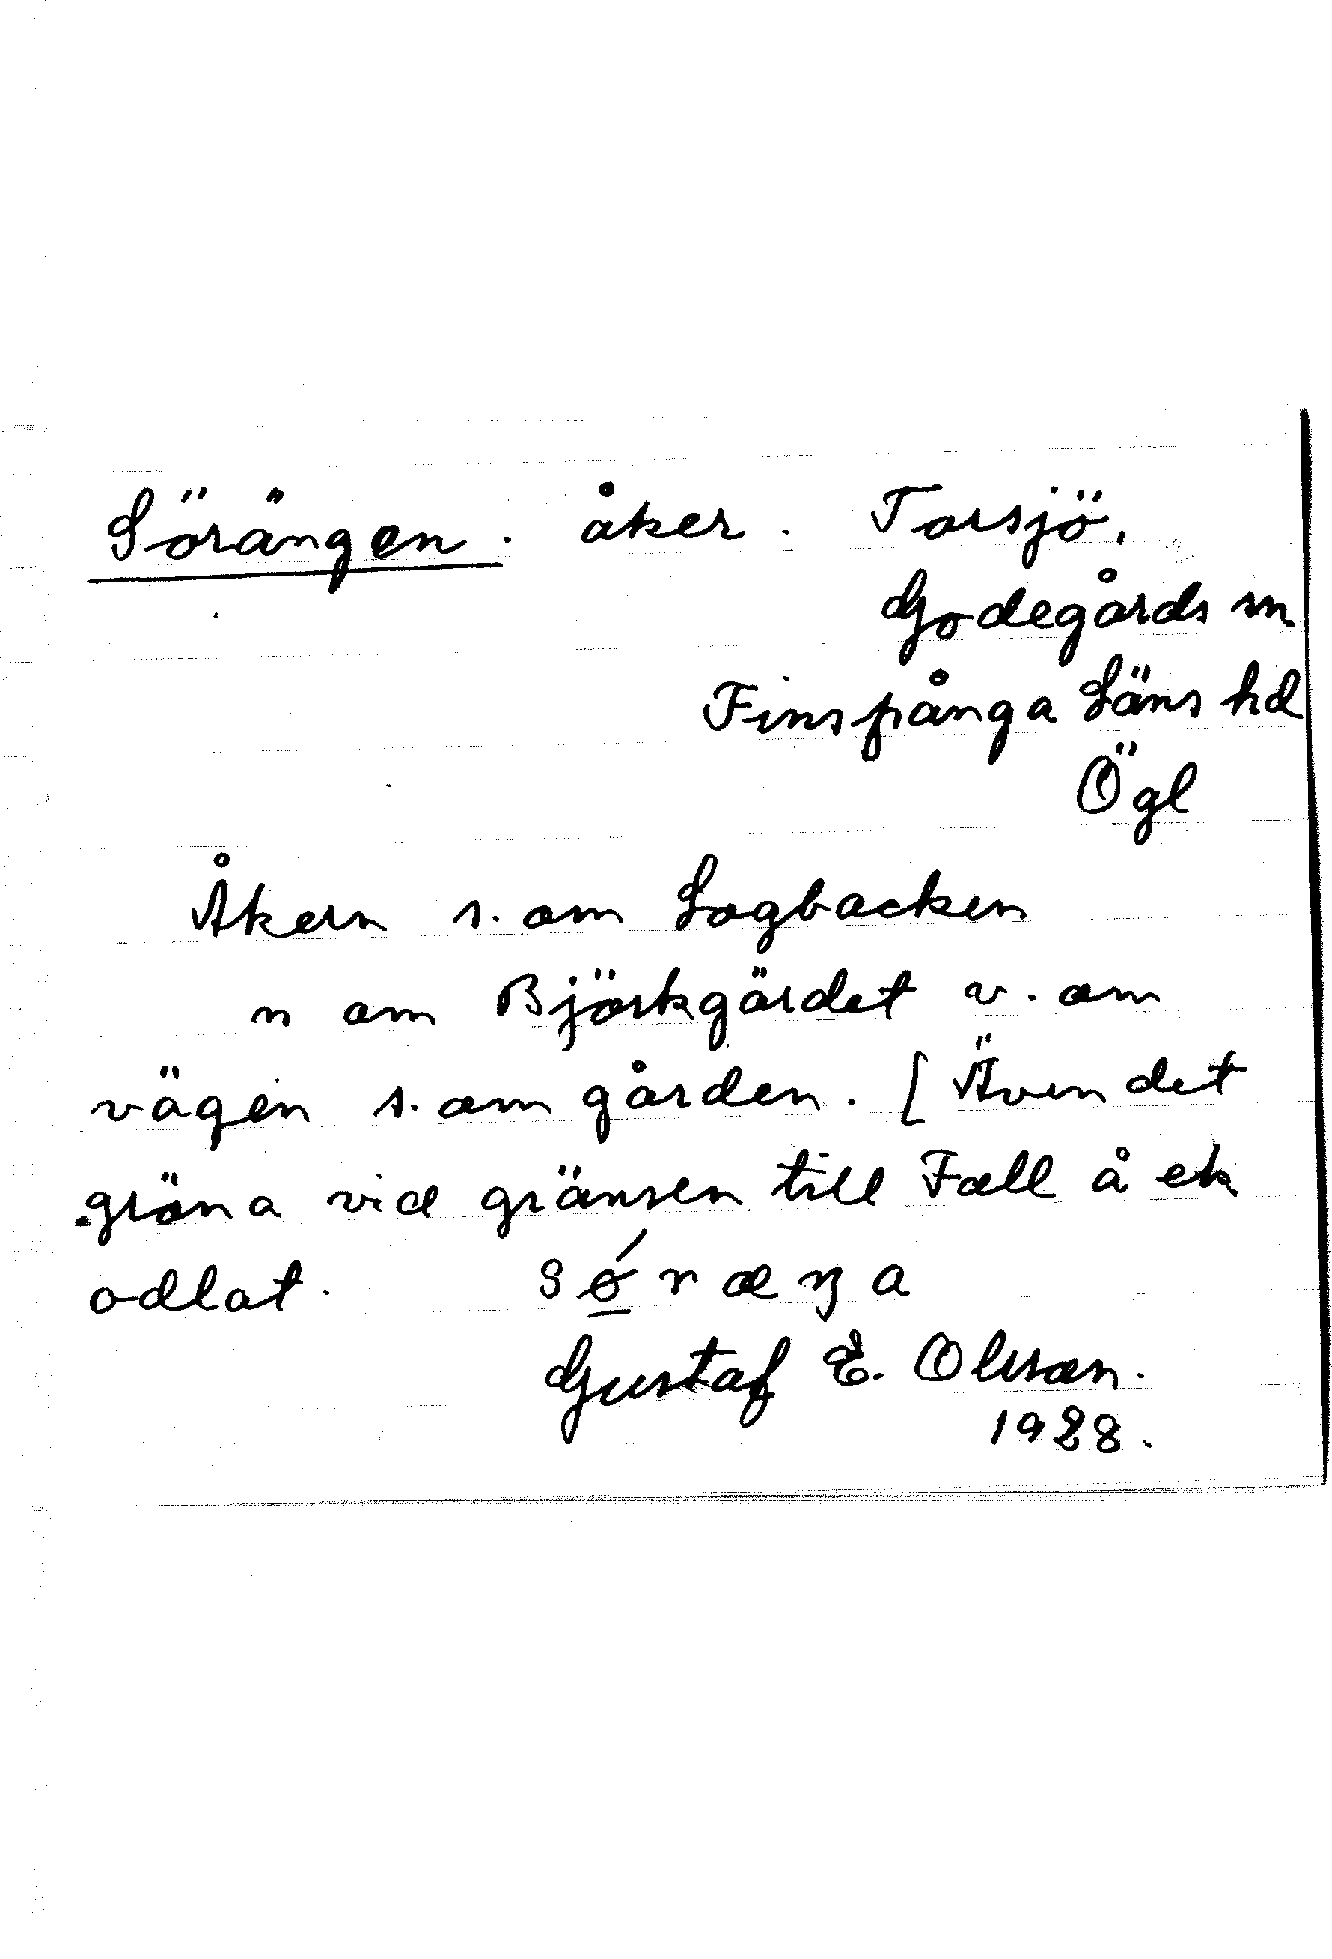 Sörängen. åker. Torsjö,
Godegårds sn
Finspånga Läns hd
Ögl
Åkern s. om Logbacken
n om Björkgärdet v. om
vägen s. om gården. [Även det
gröna vid gränsen till Fall å ek
odlat. søræŋa
Gustaf E. Olsson.
1928.